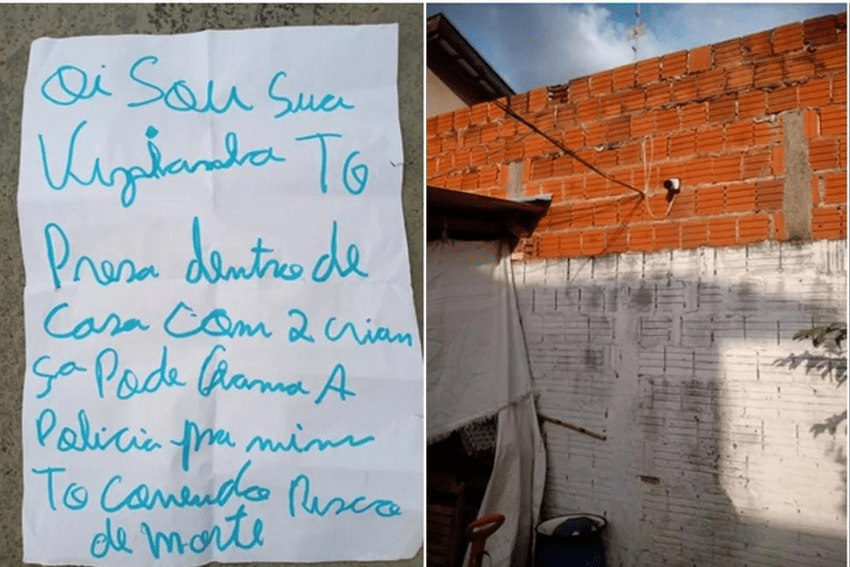 Oi Sou Sua
Vizianha TO
Presa dentro de
Casa Com 2 crian
ça Pode Chama A
Policia pra mim
To Correndo Risco
de morte